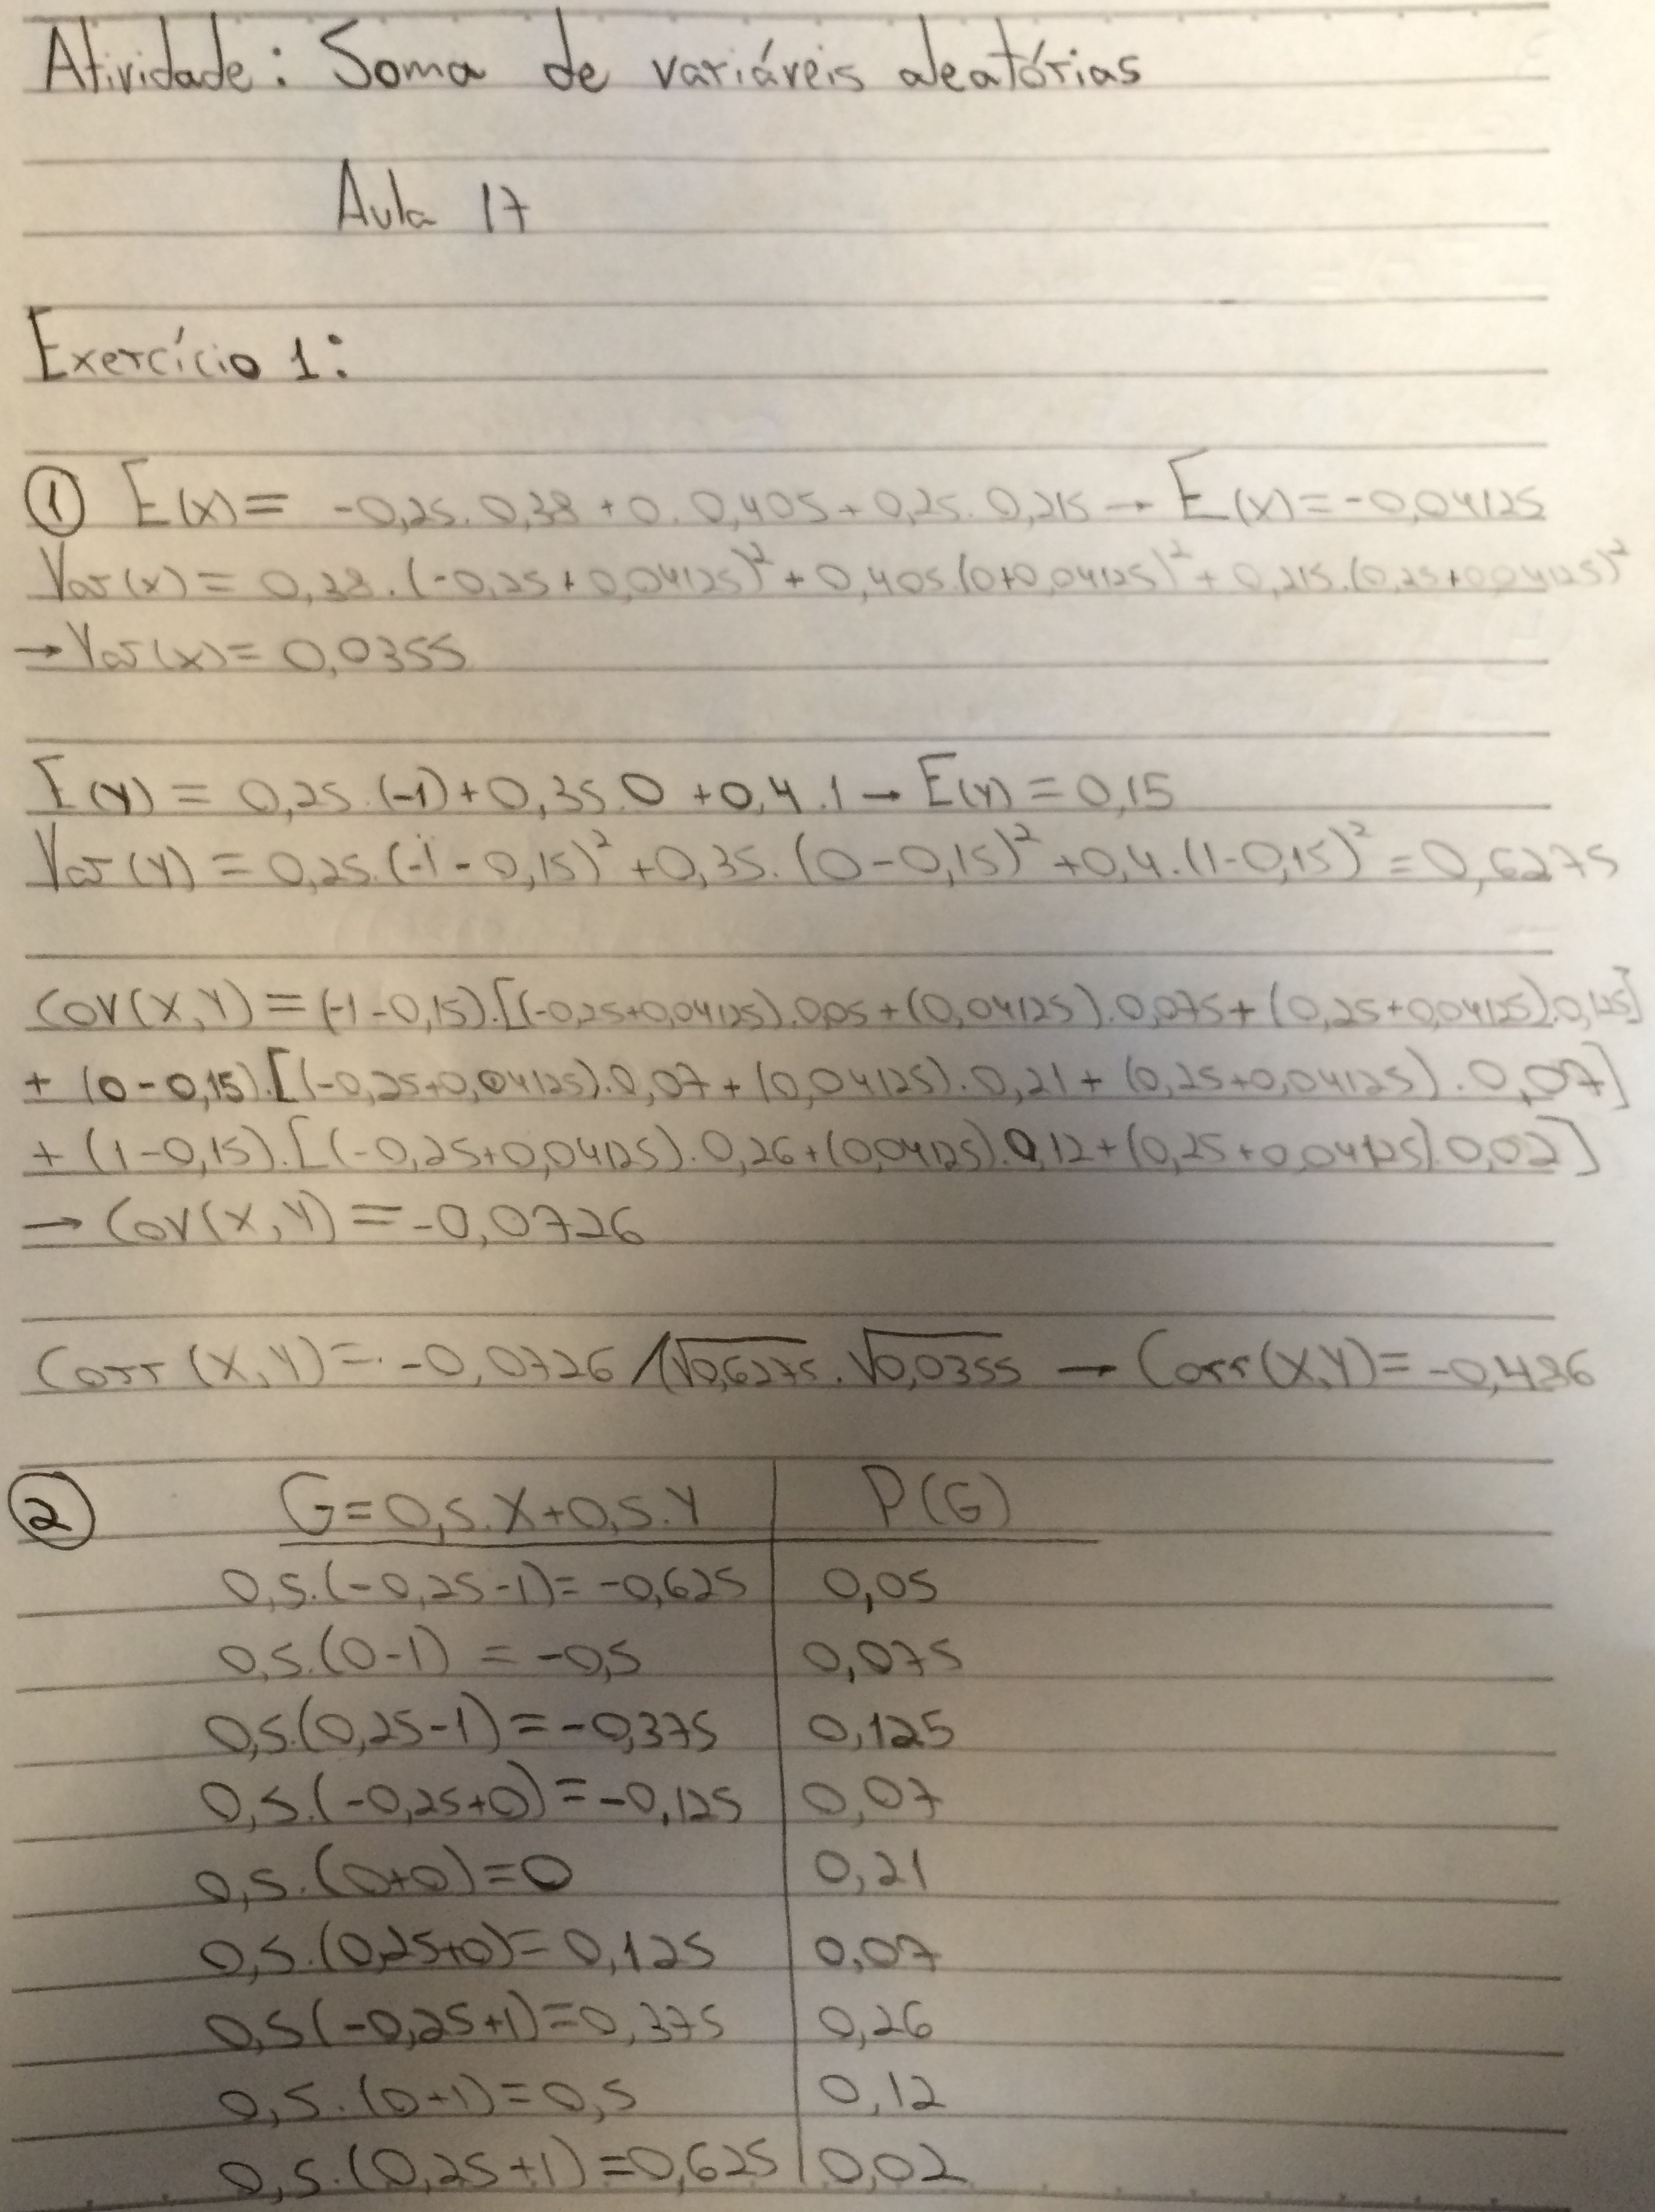 Atividade: Soma de variáveis aleatórias
Aula 17
Exercício 1:
① E(x) = -0,25.0,38 + 0.0,405 + 0,25.0,215 → E(x) = -0,04125
Var(x) = 0,38.(-0,25+0,04125)² + 0,405.(0+0,04125)² + 0,215.(0,25+0,04125)²
→ Var(x) = 0,0355
E(y) = 0,25.(-1) + 0,35.0 + 0,4.1 → E(y) = 0,15
Var(y) = 0,25.(-1-0,15)² + 0,35.(0-0,15)² + 0,4.(1-0,15)² = 0,6275
Cov(X,Y) = (-1-0,15).[(-0,25+0,04125).0,05 + (0,04125).0,075 + (0,25+0,04125).0,125]
+ (0-0,15).[(-0,25+0,04125).0,07 + (0,04125).0,21 + (0,25+0,04125).0,07]
+ (1-0,15).[(-0,25+0,04125).0,26 + (0,04125).0,12 + (0,25+0,04125).0,02]
→ Cov(X,Y) = -0,0726
Corr(X,Y) = -0,0726 /(√0,6275.√0,0355 → Corr(X,Y) = -0,486
② G=0,5.X+0,5.Y P(G)
0,5.(-0,25-1) = -0,625 0,05
0,5.(0-1) = -0,5 0,075
0,5.(0,25-1) = -0,375 0,125
0,5.(-0,25+0) = -0,125 0,07
0,5.(0+0) = 0 0,21
0,5.(0,25+0) = 0,125 0,07
0,5(-0,25+1) = 0,375 0,26
0,5.(0+1) = 0,5 0,12
0,5.(0,25+1) = 0,625 0,02